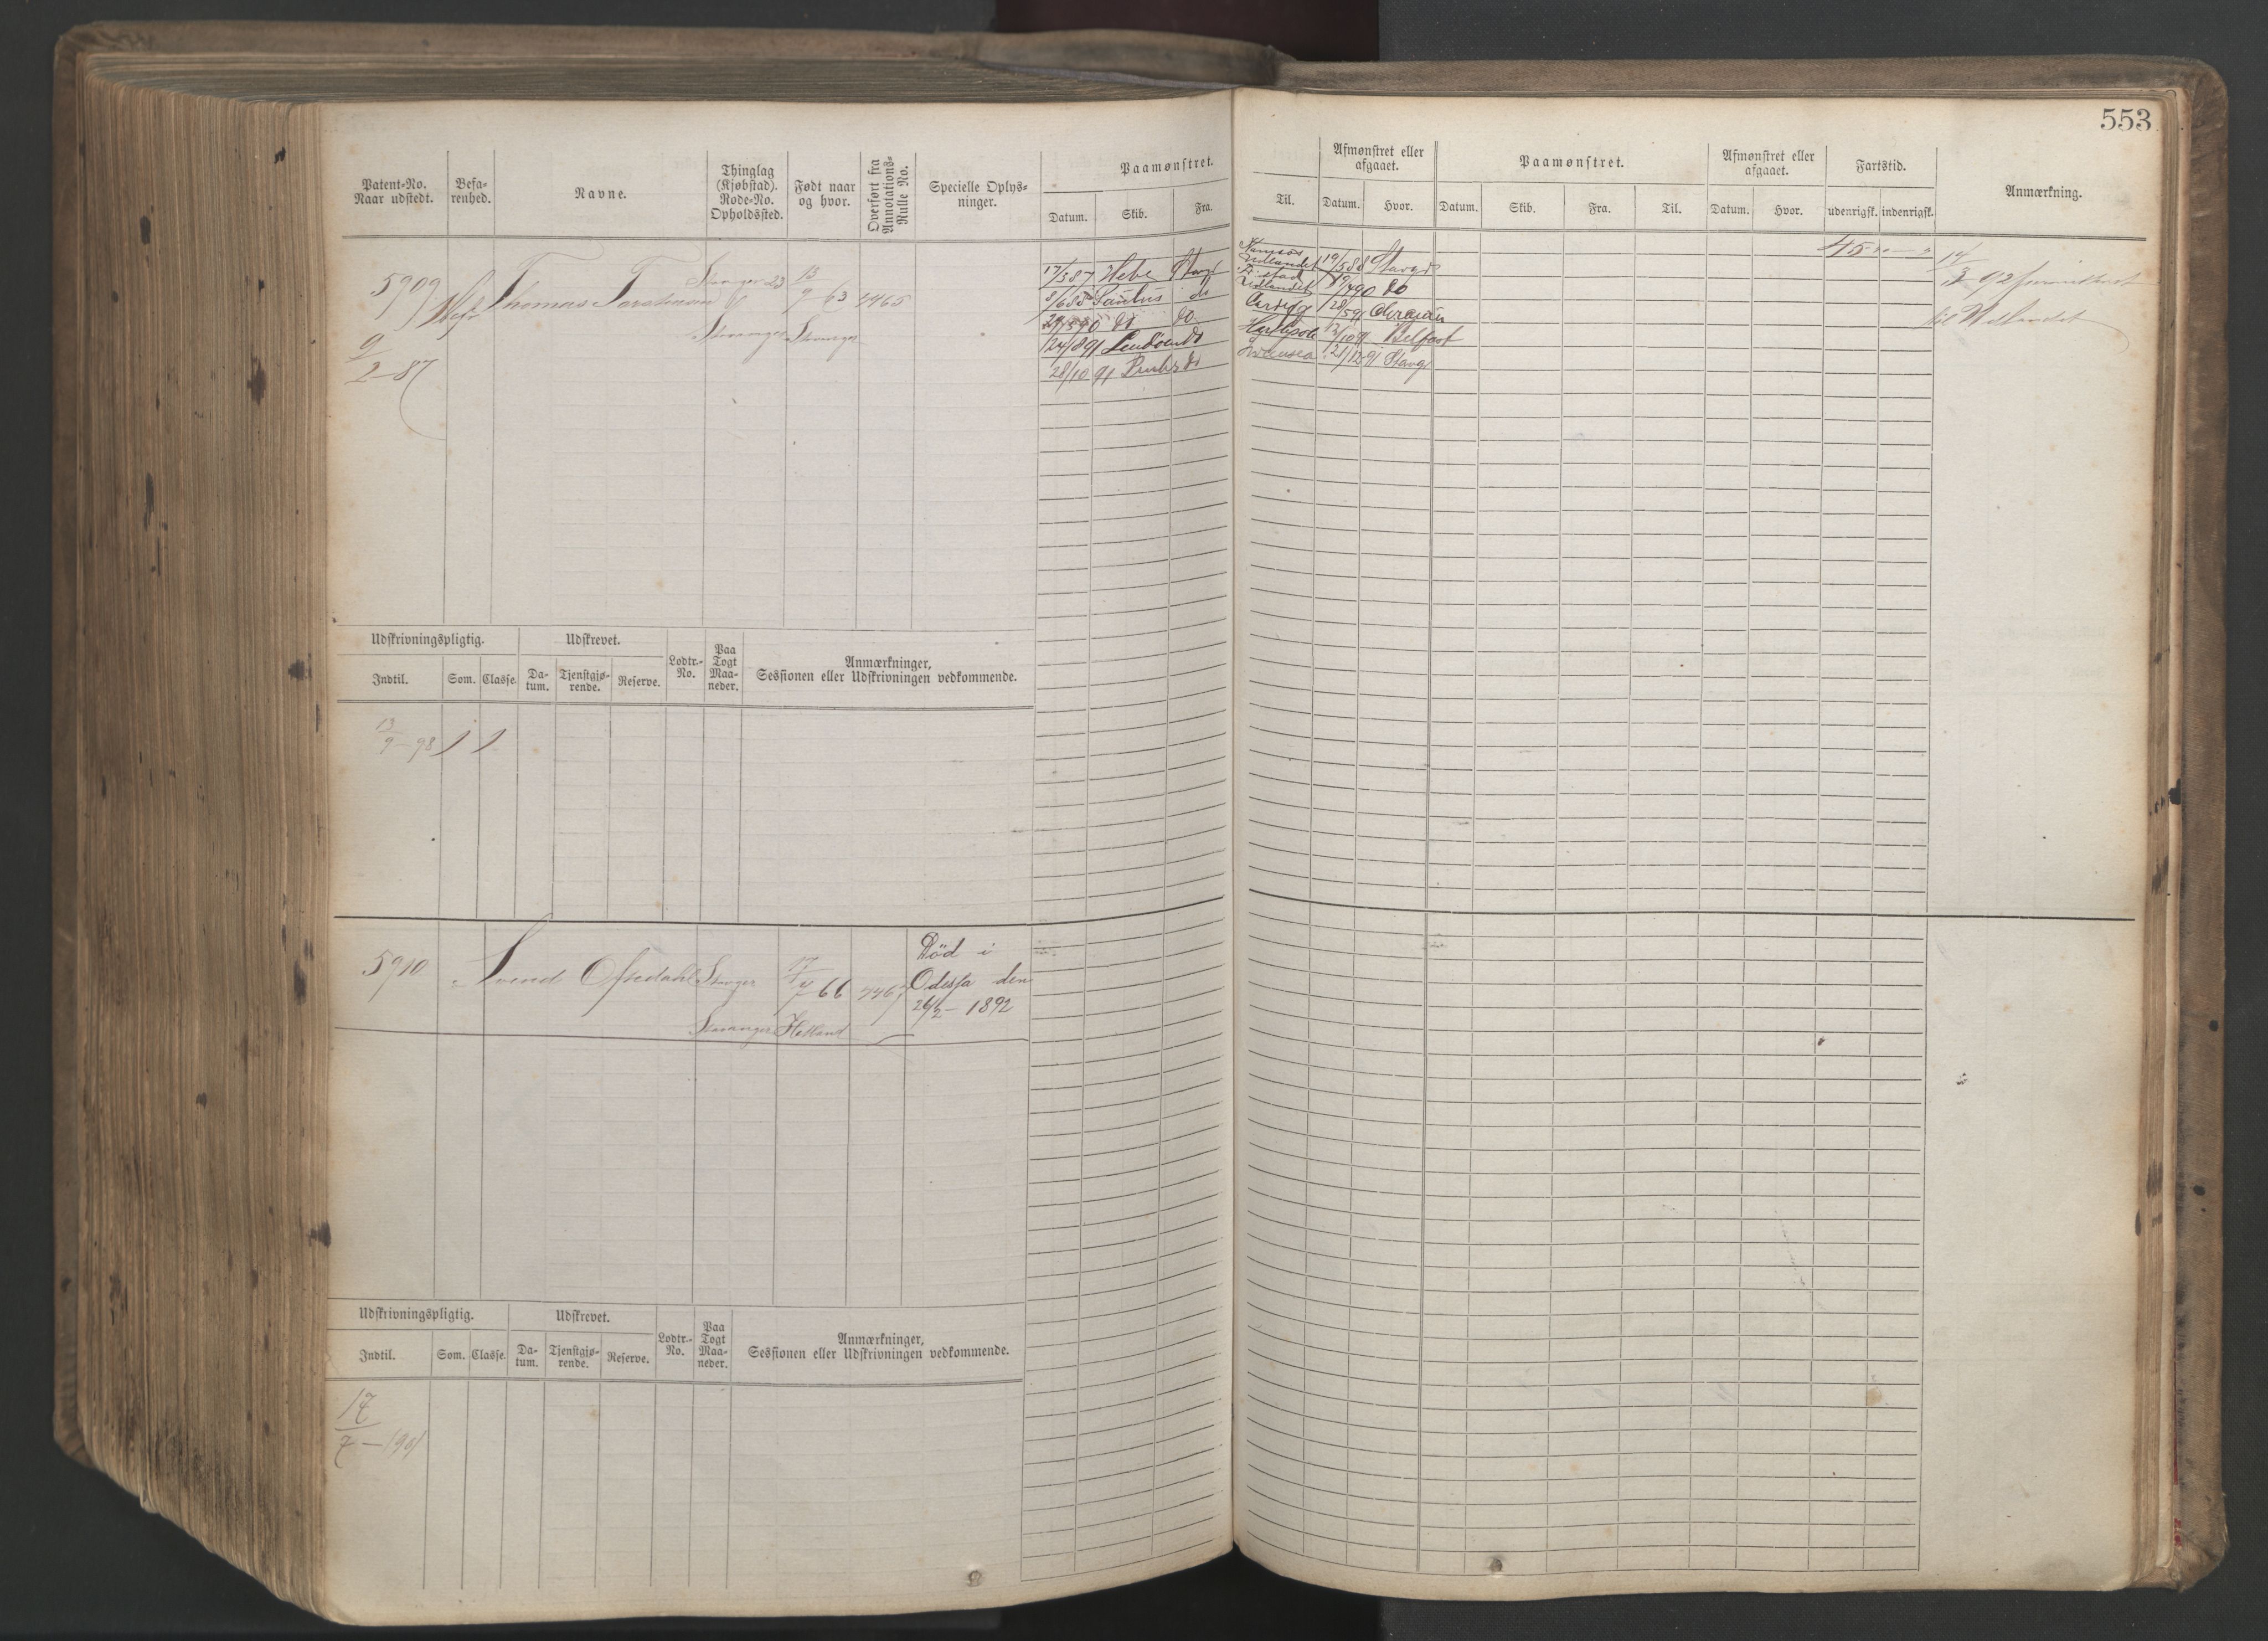 553
Patent-No. Naar udstedt.
Befa-renhed.
Navne.
Thinglag (Kjøbstad). Rode-No. Opholdssted.
Født naar og hvor.
Overført fra Annotations-Rulle No.
Specielle Oplys-ninger.
Paamønstret.
Datum. Skib. Fra. Til.
Afmønstret eller afgaaet.
Datum. Hvor.
Paamønstret.
Datum. Skib. Fra. Til.
Afmønstret eller afgaaet.
Datum. Hvor.
Fartstid.
udenrigsk. indenrigsk.
Anmærkning.
5909 Thomas Torstensen Stavanger 23 13/9 63 2465
Stavanger Stavanger
9/2-87
17/5 87 Hebe Stavgr Namsos 19/5 88 Stavgr
8/6 88 do Udlandet 90 do
90 do do Udlandet 28/5 91
24/8 91 do Hartlepool 10 91 Belfast
28/10 91 do Swansea 21/12 91 Stavgr
45
14/3 92
til Udlandet
Udskrivningspligtig.
Indtil. Som. Classe.
Udskrevet.
Da-tum. Tjenstgjø-rende. Reserve.
Lodtr.-No.
Paa Togt Maa-neder.
Anmærkninger,
Sessionen eller Udskrivningen vedkommende.
13/9-98 1 1
5910 Svend Ofstedahl Stavgr 17/7 66 2467
Stavanger Hetland
Död i
Odessa den
26/2-1892
Udskrivningspligtig.
Indtil. Som. Classe.
Udskrevet.
Da-tum. Tjenstgjø-rende. Reserve.
Lodtr.-No.
Paa Togt Maa-neder.
Anmærkninger,
Sessionen eller Udskrivningen vedkommende.
17/7-1901